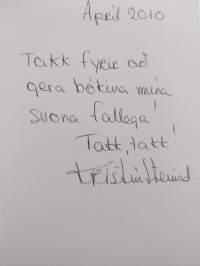 April 2010
Takk fyrir að
gera bókina mína
svona fallega!
Takk, takk!
Kristín Steinsd